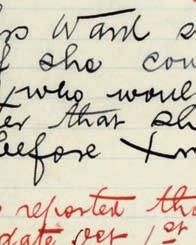 Ward s
f she cou
who woul
er that sh
before Xm
reported th
date Oct 1st